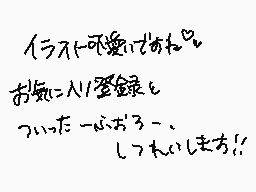 イラスト可愛いですね♡
お気に入り登録と
ついったーふぉろー、
しつれいします!!